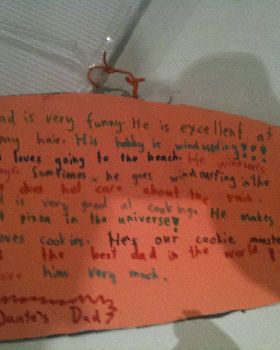 ad is very funny. He is excellent at
my hair. His hobby is windsurfing!!!
loves going to the beach. He windsurfs
Sometimes he goes windsurfing in the
does not care about the rain.
d is very good at cooking. He makes
t pizza in the universe!
oves cookies. He's our cookie monste
s the best dad in the world
ove him very much.
Dante's Dad